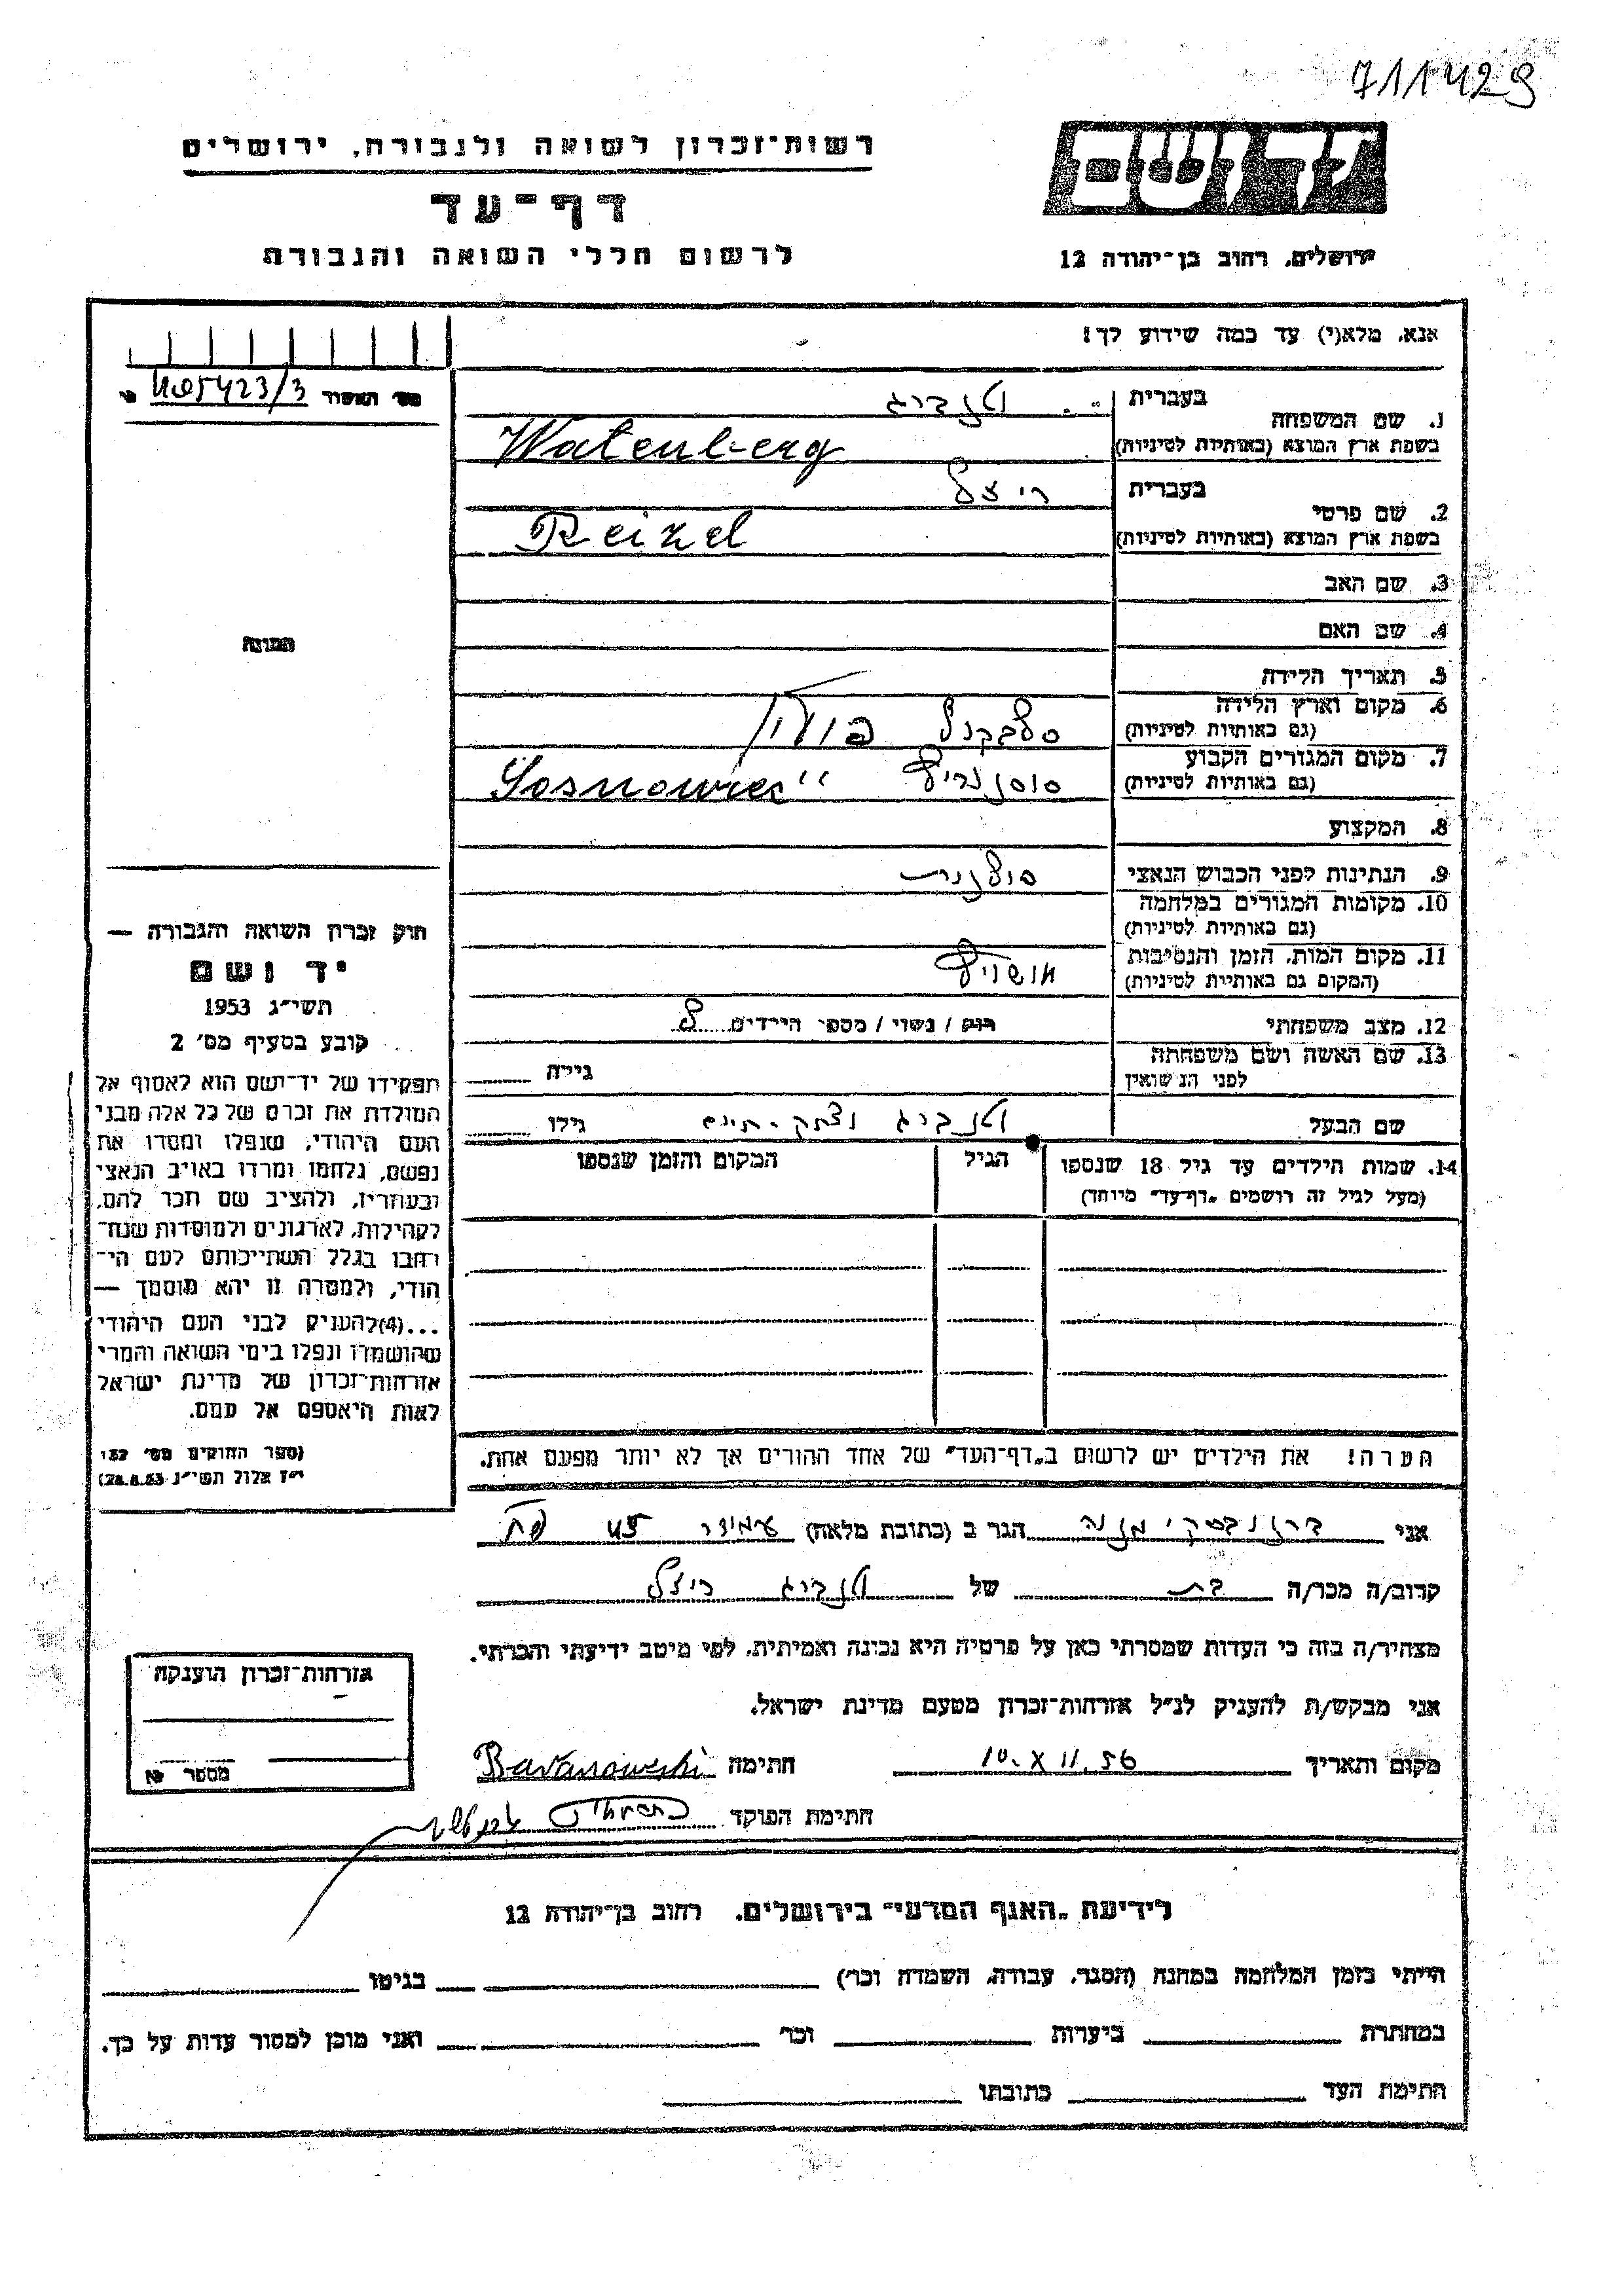 711429
רשות־זכרון לשואה ולגבורה, ירושלים
דף־עד
לרשום חללי השואה והגבורה
יד ושם
ירושלים, רחוב בן־יהודה 12
אנא, מלא(י) עד כמה שידוע לך!
מס׳ האשור
5423/3
1. שם המשפחה
בעברית
וטנברג
בשפת ארץ המוצא (באותיות לטיניות)
Watenberg
2. שם פרטי
בעברית
ריצל
בשפת ארץ המוצא (באותיות לטיניות)
Reizel
3. שם האב
4. שם האם
תמונה
5. תאריך הלידה
6. מקום וארץ הלידה
(גם באותיות לטיניות)
פולין
7. מקום המגורים הקבוע
(גם באותיות לטיניות)
Sosnowiec "
8. המקצוע
9. הנתינות לפני הכבוש הנאצי
פולנית
10. מקומות המגורים במלחמה
(גם באותיות לטיניות)
11. מקום המות, הזמן והנסיבות
(המקום גם באותיות לטיניות)
אושויץ
12. מצב משפחתי
רווק / נשוי / מספר הילדים
13. שם האשה ושם משפחתה
לפני הנשואין
גילה
שם הבעל
וטנברג יצחק
גילו
14. שמות הילדים עד גיל 18 שנספו
(מעל לגיל זה רושמים „דף־עד״ מיוחד)
הגיל
המקום והזמן שנספו
הערה! את הילדים יש לרשום ב„דף־העד״ של אחד ההורים אך לא יותר מפעם אחת.
חוק זכרון השואה והגבורה —
יד ושם
תשי״ג 1953
קובע בסעיף מס׳ 2
תפקידו של יד־ושם הוא לאסוף אל
המולדת את זכרם של כל אלה מבני
העם היהודי, שנפלו ומסרו את
נפשם, נלחמו ומרדו באויב הנאצי
ובעוזריו, ולהציב שם וזכר להם,
לקהילות, לארגונים ולמוסדות שנח־
רבו בגלל השתייכותם לעם הי־
הודי, ולמטרה זו יהא מוסמך —
...(4)להעניק לבני העם היהודי
שהושמדו ונפלו בימי השואה והמרי
אזרחות־זכרון של מדינת ישראל
לאות היאספם אל עמם.
(ספר החוקים מס׳ 132
י״ז אלול תשי״ג 28.8.53)
אני
הגר ב (כתובת מלאה)
45
קרוב/ה מכר/ה בת של וטנברג ריצל
מצהיר/ה בזה כי העדות שמסרתי כאן על פרטיה היא נכונה ואמיתית, לפי מיטב ידיעתי והכרתי.
אני מבקש/ת להעניק לנ״ל אזרחות־זכרון מטעם מדינת ישראל.
מקום ותאריך 10.X II.56 חתימה
חתימת הפוקד
אזרחות־זכרון הוענקה
מספר
לידיעת „האגף המדעי״ בירושלים, רחוב בן־יהודה 12
הייתי בזמן המלחמה במחנה (הסגר, עבודה, השמדה וכו׳) בגיטו
במחתרת ביערות וכו׳ ואני מוכן למסור עדות על כך.
חתימת העד כתובתו